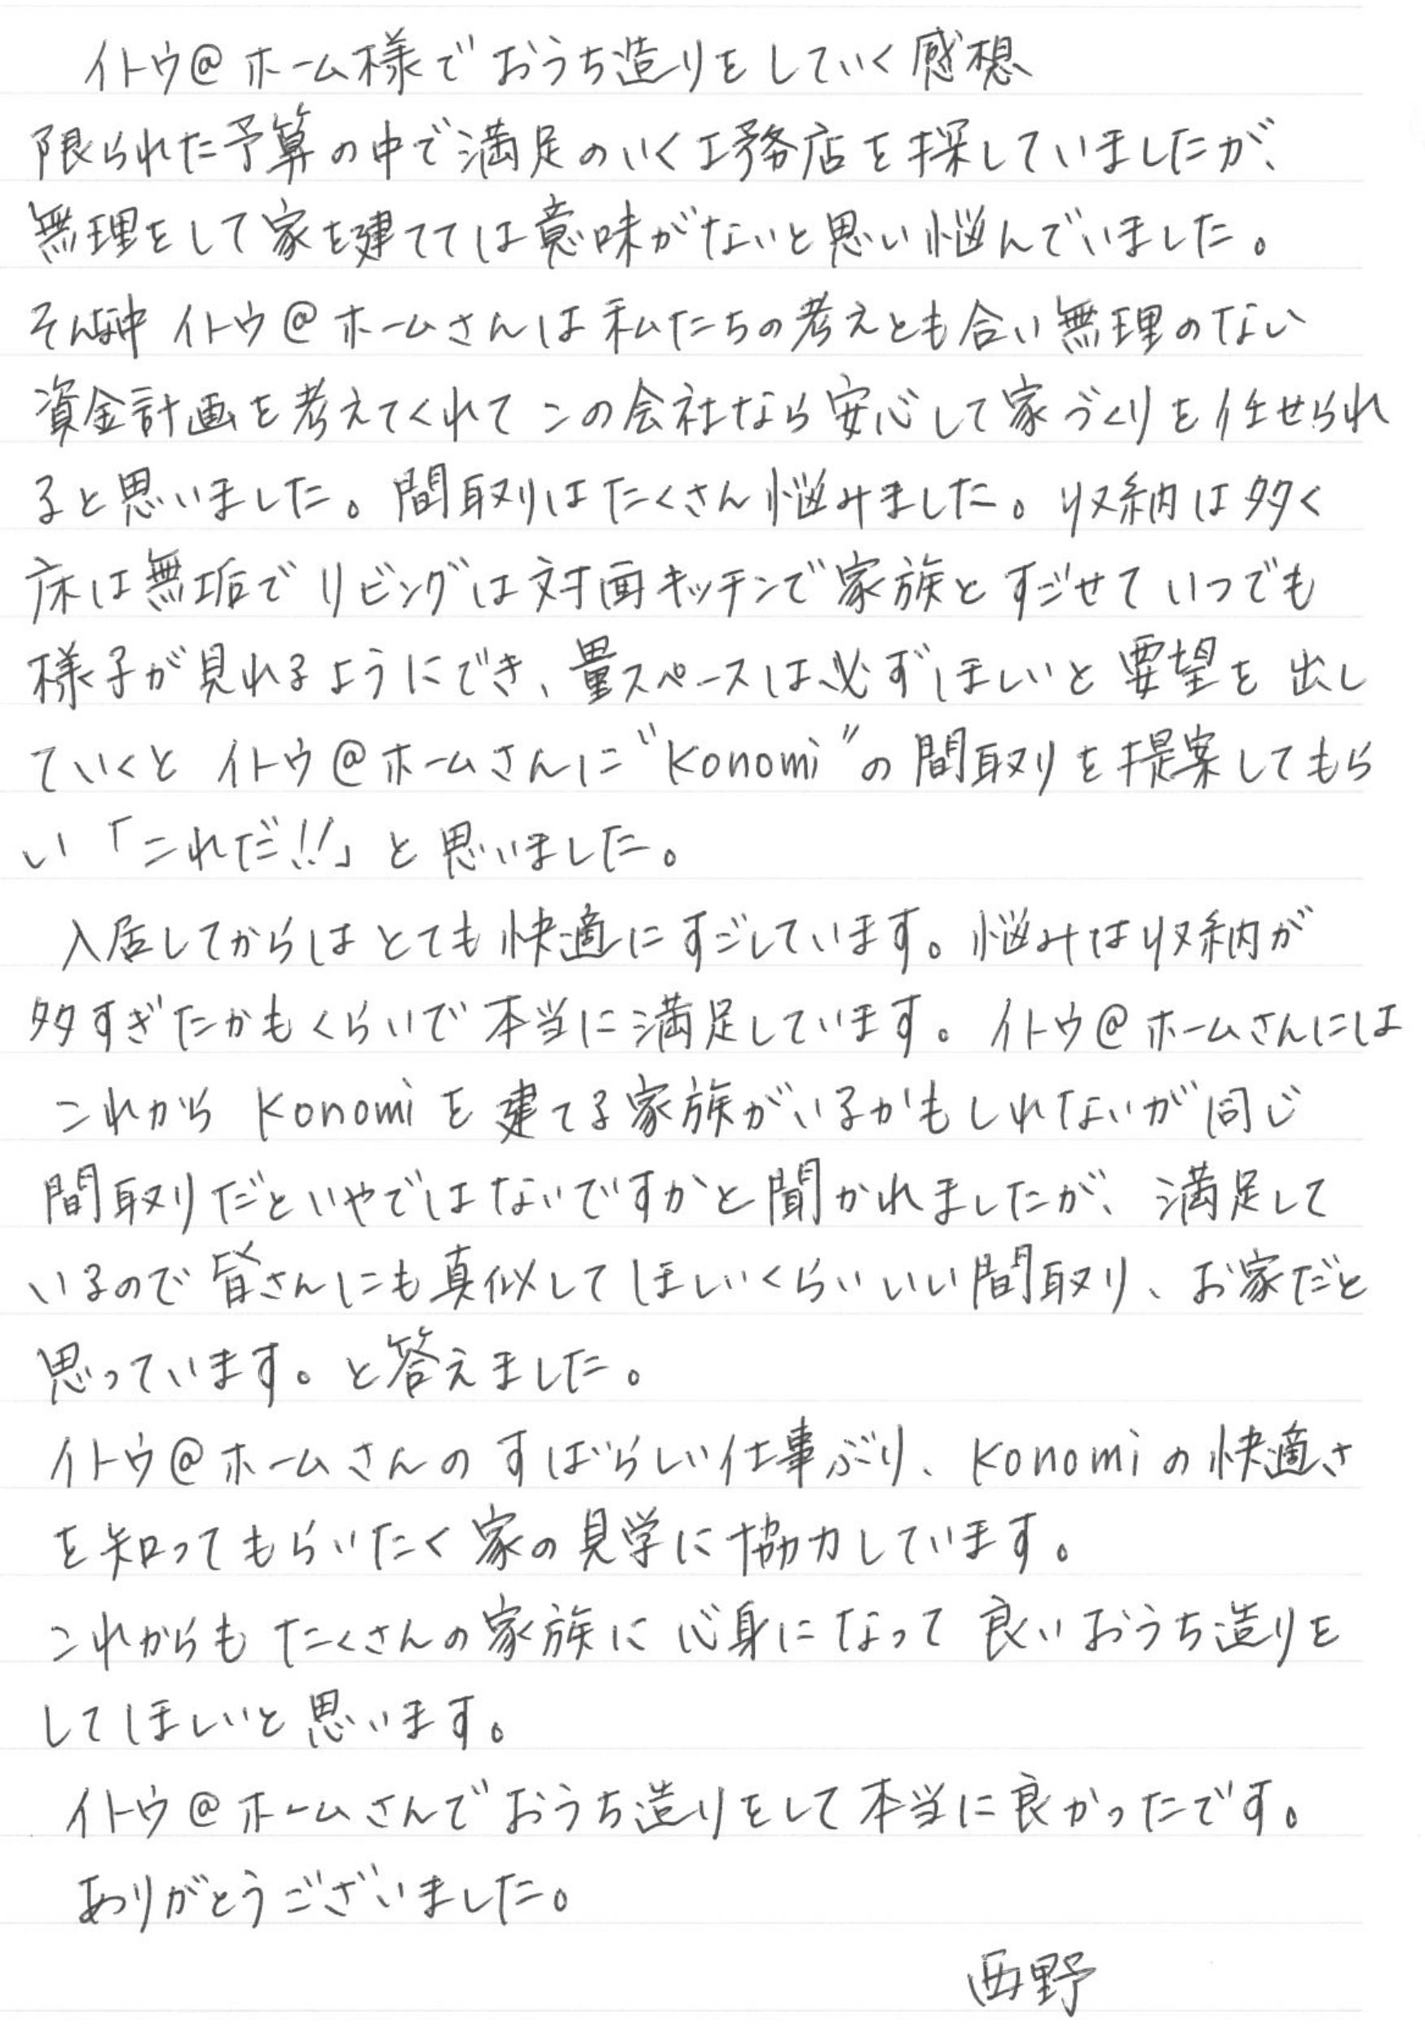 イトウ@ホーム様でおうち造りをしていく感想
限られた予算の中で満足のいく工務店を探していましたが、
無理をして家を建てては意味がないと思い悩んでいました。
そんな中イトウ@ホームさんは私たちの考えとも合い無理のない
資金計画を考えてくれてこの会社なら安心して家づくりを任せられ
ると思いました。間取りはたくさん悩みました。収納は多く
床は無垢でリビングは対面キッチンで家族とすごせていつでも
様子が見れるようにでき、畳スペースは必ずほしいと要望を出し
ていくとイトウ@ホームさんに"Konomi"の間取りを提案してもら
い「これだ!!」と思いました。
入居してからはとても快適にすごしています。悩みは収納が
多すぎたかもくらいで本当に満足しています。イトウ@ホームさんには
これからKonomiを建てる家族がいるかもしれないが同じ
間取りだといやではないですかと聞かれましたが、満足して
いるので皆さんにも真似してほしいくらいいい間取り、お家だと
思っています。と答えました。
イトウ@ホームさんのすばらしい仕事ぶり、Konomiの快適さ
を知ってもらいたく家の見学に協力しています。
これからもたくさんの家族に心身になって良いおうち造りを
してほしいと思います。
イトウ@ホームさんでおうち造りをして本当に良かったです。
ありがとうございました。
西野